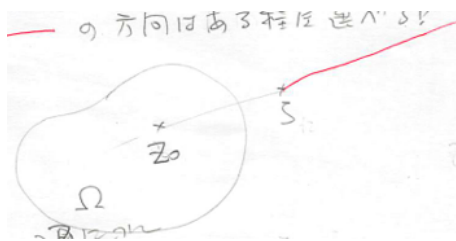 の方向はある程度選べる!
ζ
z₀
Ω